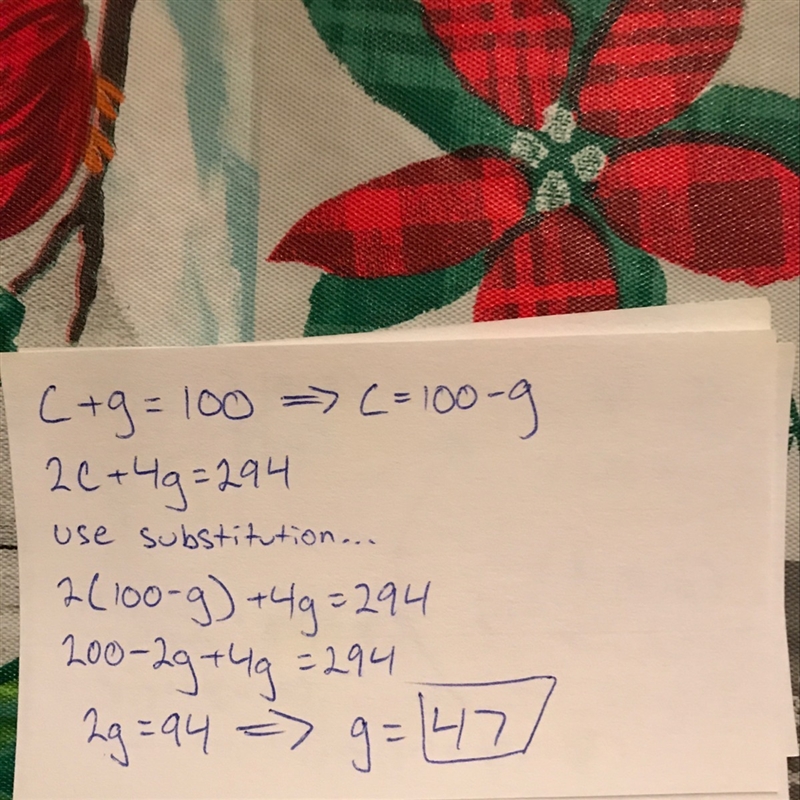 C+g=100 => C=100-g
2C+4g=294
use substitution...
2(100-g)+4g=294
200-2g+4g=294
2g=94 => g=47